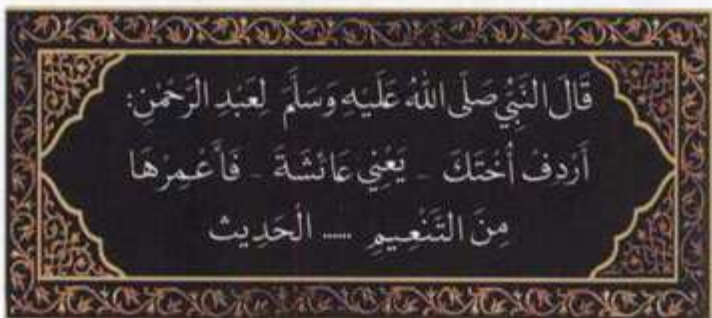 قَالَ النَّبِيُّ صَلَّى اللهُ عَلَيْهِ وَسَلَّمَ لِعَبْدِ الرَّحْمٰنِ:
أَرْدِفْ أُخْتَكَ - يَعْنِي عَائشَةَ - فَأَعْمِرْهَا
مِنَ التَّنْعِيمِ ..... الْحَدِيث